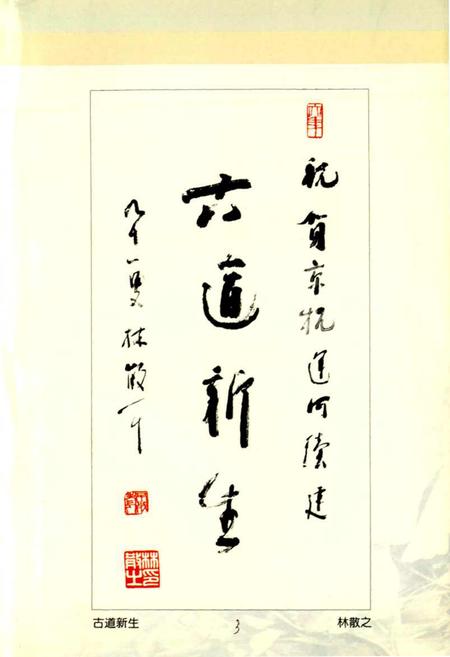 祝贺京杭运河续建
古道新生
九十一叟林散耳
林散之印
古道新生
3
林散之